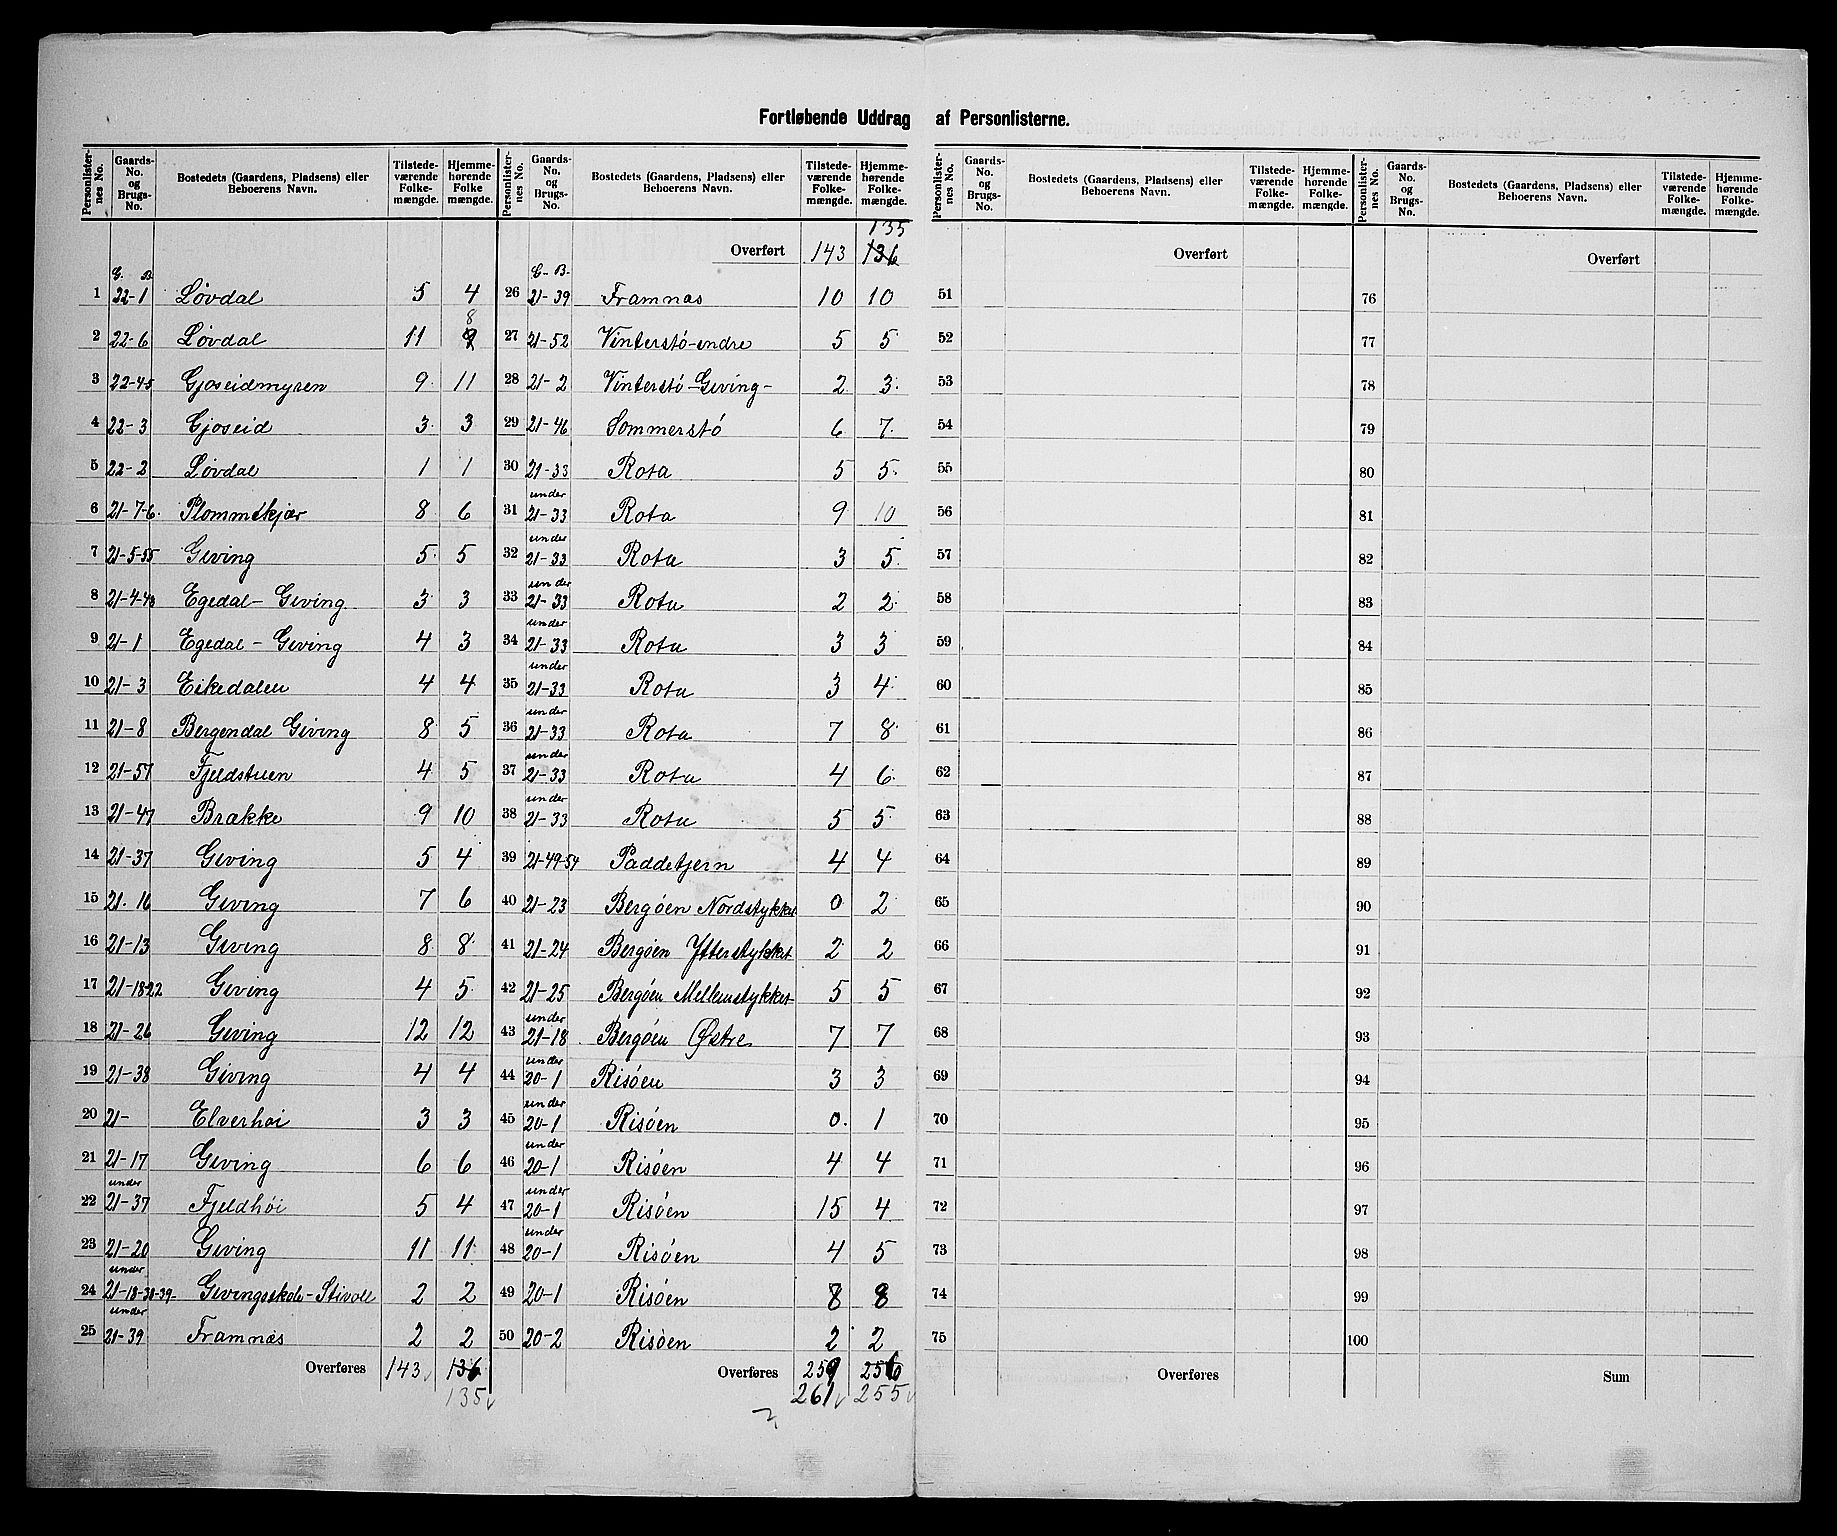 Fortløbende Uddrag af Personlisterne.
Personlister-nes No. | Gaards-No. og Brugs-No. | Bostedets (Gaardens, Pladsens) eller Beboerens Navn. | Tilstede-værende Folke-mængde. | Hjemme-hørende Folke mængde.
G. B.
1 22-1 Løvdal 5 4
2 22-6 Løvdal 11 9 8
3 22-45 Gjoseidmyren 9 11
4 22-3 Gjoseid 3 3
5 22-2 Løvdal 1 1
6 21-7-6 Plommeskjær 8 6
7 21-5-55 Geving 5 5
8 21-4-43 Egedal-Geving 3 3
9 21-1 Egedal-Geving 4 3
10 21-3 Eikedalen 4 4
11 21-8 Bergendal Giving 8 5
12 21-57 Fjeldstuen 4 5
13 21-47 Brække 9 10
14 21-37 Geving 5 4
15 21-10 Geving 7 6
16 21-13 Geving 8 8
17 21-18-22 Geving 4 5
18 21-26 Geving 12 12
19 21-38 Geving 4 4
20 21- Elverhøi 3 3
21 21-17 Geving 6 6
22 under 21-37 Fjeldhöi 5 4
23 21-20 Geving 11 11
24 under 21-18-38-39- Gevingsskole-Stivoll 2 2
25 under 21-39 Framnæs 2 2
Overføres 143 136
135
Personlister-nes No. | Gaards-No. og Brugs-No. | Bostedets (Gaardens, Pladsens) eller Beboerens Navn. | Tilstede-værende Folke-mængde. | Hjemme-hørende Folke-mængde.
135
Overført 143 136
G. B.
26 21-39 Framnæs 10 10
27 21-52 Vinterstö-indre 5 5
28 21-2 Vinterstö-Geving- 2 3
29 21-46 Sommerstö 6 7
30 21-33 Rota 5 5
31 under 21-33 Rota 9 10
32 under 21-33 Rota 3 5
33 under 21-33 Rota 2 2
34 under 21-33 Rota 3 3
35 under 21-33 Rota 3 4
36 under 21-33 Rota 7 8
37 under 21-33 Rota 4 6
38 under 21-33 Rota 5 5
39 21-49-54 Paddetjern 4 4
40 21-23 Bergöen Nordstykket 0 2
41 21-24 Bergöen Ytterstykket 2 2
42 21-25 Bergöen Mellemstykket 5 5
43 under 21-18 Bergöen Østre 7 7
44 under 20-1 Risöen 3 3
45 under 20-1 Risöen 0 1
46 under 20-1 Risöen 4 4
47 under 20-1 Risöen 15 4
48 under 20-1 Risöen 4 5
49 20-1 Risöen 8 8
50 20-2 Risöen 2 2
Overføres 259 256
261 255
Personlister-nes No. | Gaards-No. og Brugs-No. | Bostedets (Gaardens, Pladsens) eller Beboerens Navn. | Tilstede-værende Folke-mængde. | Hjemme-hørende Folke-mængde.
Overført
51
52
53
54
55
56
57
58
59
60
61
62
63
64
65
66
67
68
69
70
71
72
73
74
75
Overføres
Personlister-nes No. | Gaards-No. og Brugs-No. | Bostedets (Gaardens, Pladsens) eller Beboerens Navn. | Tilstede-værende Folke-mængde. | Hjemme-hørende Folke-mængde.
Overført
76
77
78
79
80
81
82
83
84
85
86
87
88
89
90
91
92
93
94
95
96
97
98
99
100
Sum